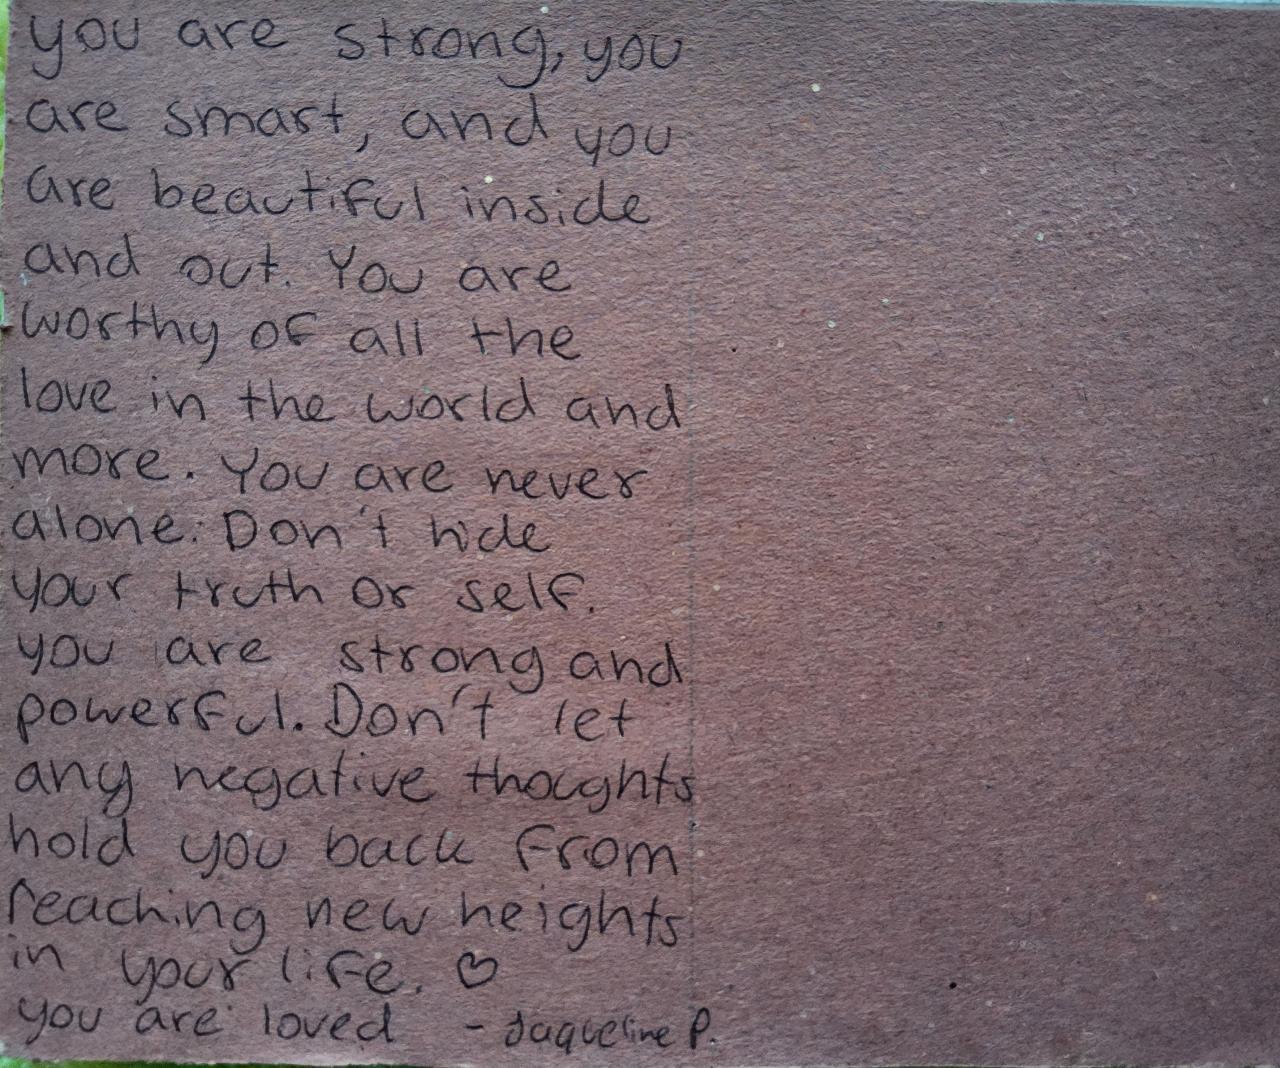 you are strong, you
are smart, and you
are beautiful inside
and out. You are
worthy of all the
love in the world and
more. You are never
alone. Don't hide
your truth or self.
you are strong and
powerful. Don't let
any negative thoughts
hold you back from
reaching new heights
in your life. ♡
you are loved - Jaqueline P.